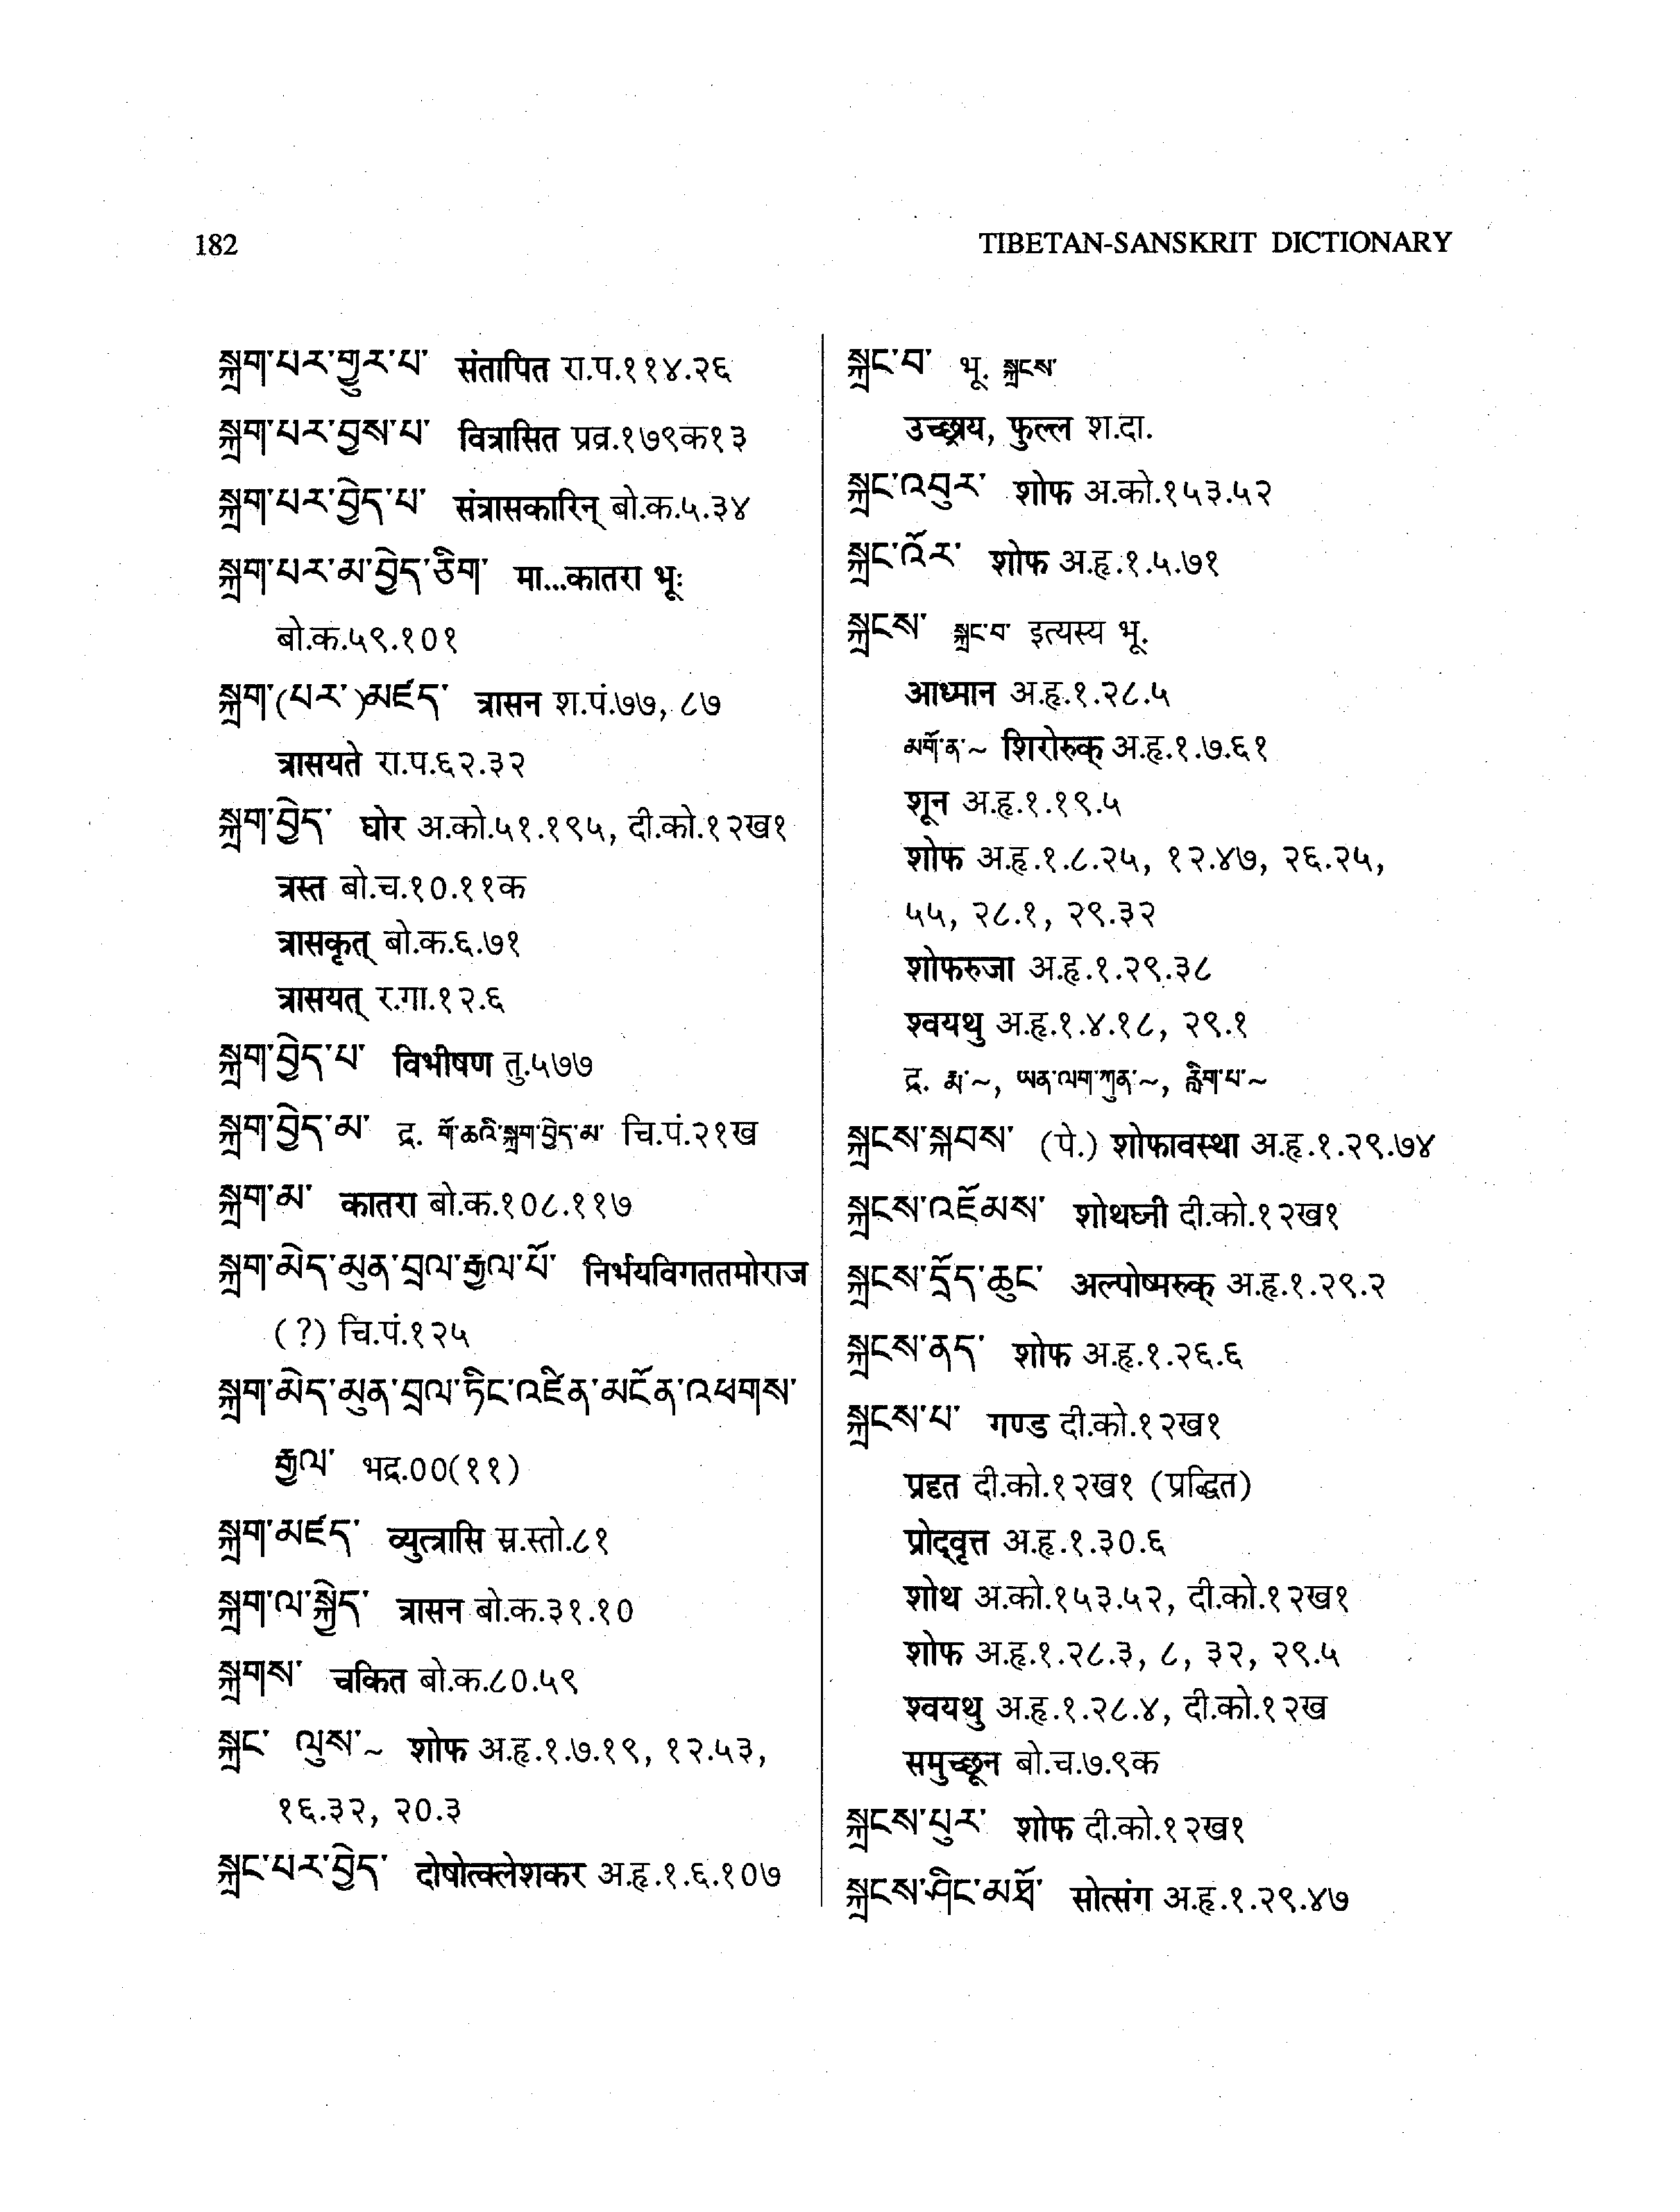 182
TIBETAN-SANSKRIT DICTIONARY
སྐྲག་པར་གྱུར་པ་ संतापित रा.प.११४.२६
སྐྲག་པར་བྱས་པ་ वित्रासित प्रव्र.१७९क१३
སྐྲག་པར་བྱེད་པ་ संत्रासकारिन् बो.क.५.३४
སྐྲག་པར་མ་བྱེད་ཅིག་ मा...कातरा भूः
बो.क.५९.१०१
སྐྲག་(པར་)མཛད་ त्रासन श.पं.७७, ८७
त्रासयते रा.प.६२.३२
སྐྲག་བྱེད་ घोर अ.को.५१.१९५, दी.को.१२ख१
त्रस्त बो.च.१०.११क
त्रासकृत् बो.क.६.७१
त्रासयत् र.गा.१२.६
སྐྲག་བྱེད་པ་ विभीषण तु.५७७
སྐྲག་བྱེད་མ་ द्र. གོ་ཆའི་སྐྲག་བྱེད་མ་ चि.पं.२१ख
སྐྲག་མ་ कातरा बो.क.१०८.११७
སྐྲག་མེད་མུན་བྲལ་རྒྱལ་པོ་ निर्भयविगततमोराज
(?) चि.पं.१२५
སྐྲག་མེད་མུན་བྲལ་ཏིང་འཛིན་མངོན་འཕགས་
རྒྱལ་ भद्र.००(११)
སྐྲག་མཛད་ व्युत्त्रासि स्र.स्तो.८१
སྐྲག་ལ་སྐྱེད་ त्रासन बो.क.३१.१०
སྐྲགས་ चकित बो.क.८०.५९
སྐྲང་ ལུས་~ शोफ अ.हृ.१.७.१९, १२.५३,
१६.३२, २०.३
སྐྲང་པར་བྱེད་ दोषोत्क्लेशकर अ.हृ.१.६.१०७
སྐྲང་བ་ भू. སྐྲངས་
उच्छ्राय, फुल्ल श.दा.
སྐྲང་འབུར་ शोफ अ.को.१५३.५२
སྐྲང་འོར་ शोफ अ.हृ.१.५.७१
སྐྲངས་ སྐྲང་བ་ इत्यस्य भू.
आध्मान अ.हृ.१.२८.५
མགོ་ན་~ शिरोरुक् अ.हृ.१.७.६१
शून अ.हृ.१.१९.५
शोफ अ.हृ.१.८.२५, १२.४७, २६.२५,
५५, २८.१, २९.३२
शोफरुजा अ.हृ.१.२९.३८
श्वयथु अ.हृ.१.४.१८, २९.१
द्र. རྨ་~, ཡན་ལག་ཀུན་~, རླིག་པ་~
སྐྲངས་སྐབས་ (पे.) शोफावस्था अ.हृ.१.२९.७४
སྐྲངས་འཇོམས་ शोथघ्नी दी.को.१२ख१
སྐྲངས་དྲོད་ཆུང་ अल्पोष्मरुक् अ.हृ.१.२९.२
སྐྲངས་ནད་ शोफ अ.हृ.१.२६.६
སྐྲངས་པ་ गण्ड दी.को.१२ख१
प्रदृत दी.को.१२ख१ (प्रद्धित)
प्रोद्वृत्त अ.हृ.१.३०.६
शोथ अ.को.१५३.५२, दी.को.१२ख१
शोफ अ.हृ.१.२८.३, ८, ३२, २९.५
श्वयथु अ.हृ.१.२८.४, दी.को.१२ख
समुच्छून बो.च.७.९क
སྐྲངས་པུར་ शोफ दी.को.१२ख१
སྐྲངས་ཤིང་མཐོ་ सोत्संग अ.हृ.१.२९.४७